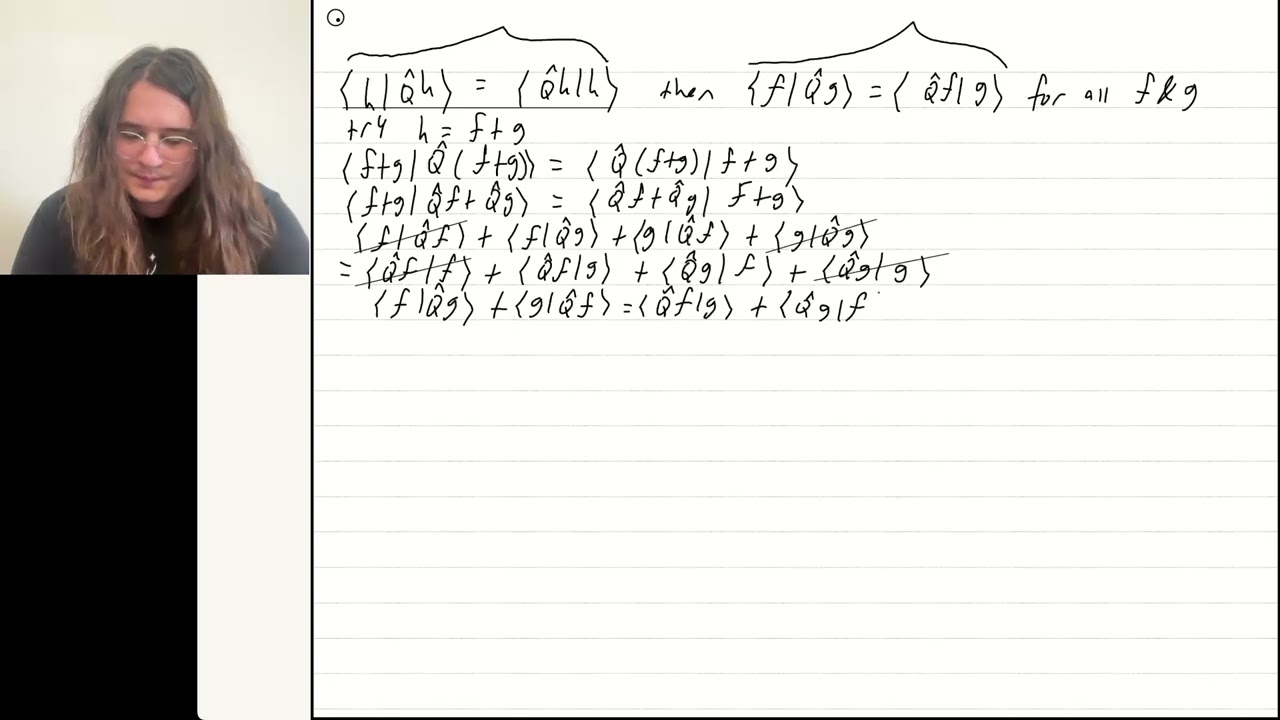 ⟨h|Q̂h⟩ = ⟨Q̂h|h⟩ then ⟨f|Q̂g⟩ = ⟨Q̂f|g⟩ for all f & g
try h = f+g
⟨f+g|Q̂(f+g)⟩ = ⟨Q̂(f+g)|f+g⟩
⟨f+g|Q̂f+Q̂g⟩ = ⟨Q̂f+Q̂g|f+g⟩
⟨f|Q̂f⟩ + ⟨f|Q̂g⟩ + ⟨g|Q̂f⟩ + ⟨g|Q̂g⟩
= ⟨Q̂f|f⟩ + ⟨Q̂f|g⟩ + ⟨Q̂g|f⟩ + ⟨Q̂g|g⟩
⟨f|Q̂g⟩ + ⟨g|Q̂f⟩ = ⟨Q̂f|g⟩ + ⟨Q̂g|f